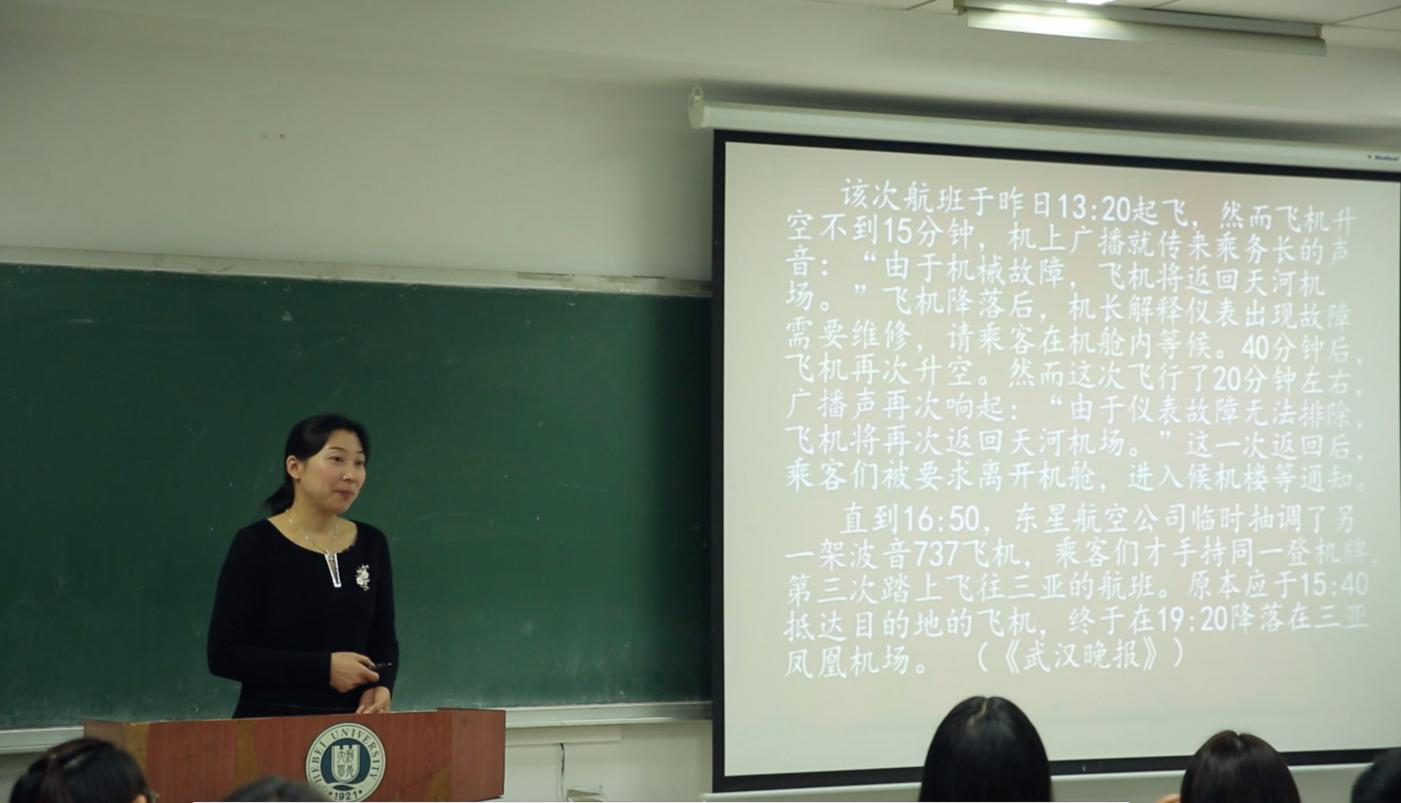 该次航班于昨日13:20起飞，然而飞机升
空不到15分钟，机上广播就传来乘务长的声
音：“由于机械故障，飞机将返回天河机
场。”飞机降落后，机长解释仪表出现故障
需要维修，请乘客在机舱内等候。40分钟后，
飞机再次升空。然而这次飞行了20分钟左右，
广播声再次响起：“由于仪表故障无法排除，
飞机将再次返回天河机场。”这一次返回后，
乘客们被要求离开机舱，进入候机楼等通知。
直到16:50，东星航空公司临时抽调了另
一架波音737飞机，乘客们才手持同一登机牌，
第三次踏上飞往三亚的航班。原本应于15:40
抵达目的地的飞机，终于在19:20降落在三亚
凤凰机场。（《武汉晚报》）
HEBEI UNIVERSITY
1921